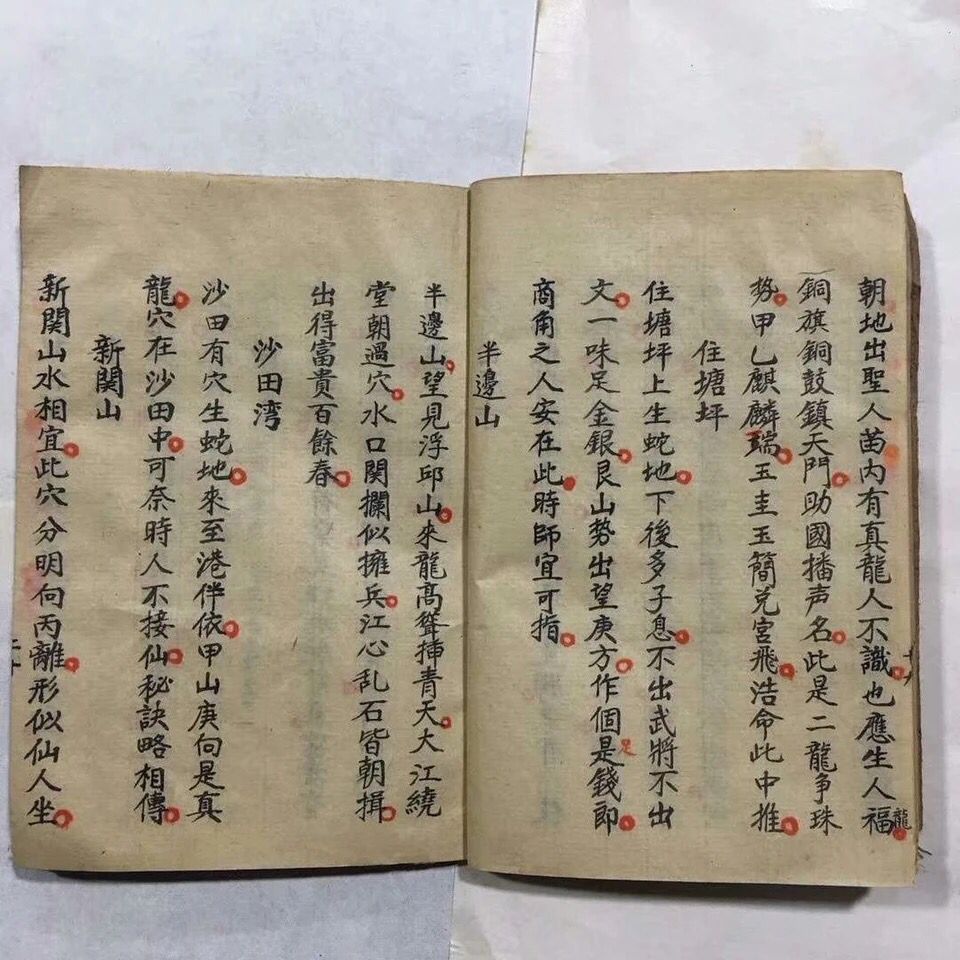 朝地出聖人苗内有真龍人不識也應生人福
龍
銅旗銅鼓鎮天門助國播声名此是二龍争珠
势甲乙麒麟瑞玉圭玉簡兑宮飛浩命此中推
住塘坪
住塘坪上生蛇地下後多子息不出武將不出
文一味足金銀艮山势出望庚方作個是錢即
足
商角之人安在此時師宜可指
半邊山
半邊山望見浮邱山來龍高聳揷青天大江繞
堂朝過穴水口関攔似擁兵江心乱石皆朝揖
出得富貴百餘春
沙田湾
沙田有穴生蛇地來至港伴依甲山庚向是真
龍穴在沙田中可奈時人不接仙秘訣略相傳
新関山
新関山水相宜此穴分明向丙離形似仙人坐